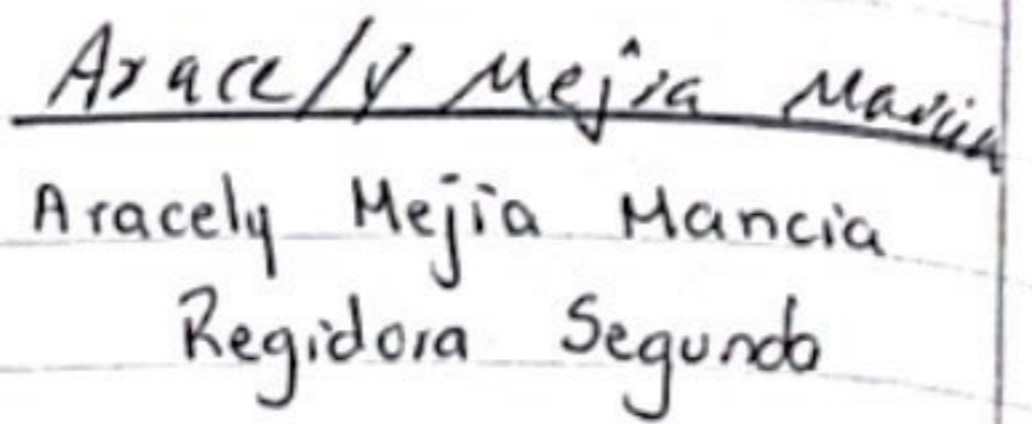 Aracely Mejia Mancia
Aracely Mejía Mancia
Regidora Segundo